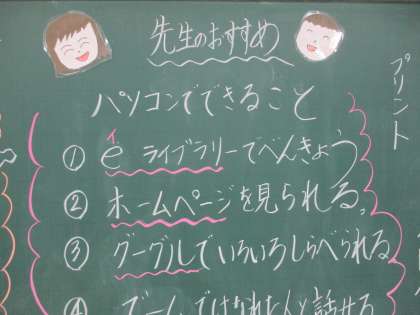 先生のおすすめ
パソコンでできること
① eライブラリーでべんきょう
イ
② ホームページを見られる。
③ グーグルでいろいろしらべられる
④ ズームではなれた人と話せる
プリント